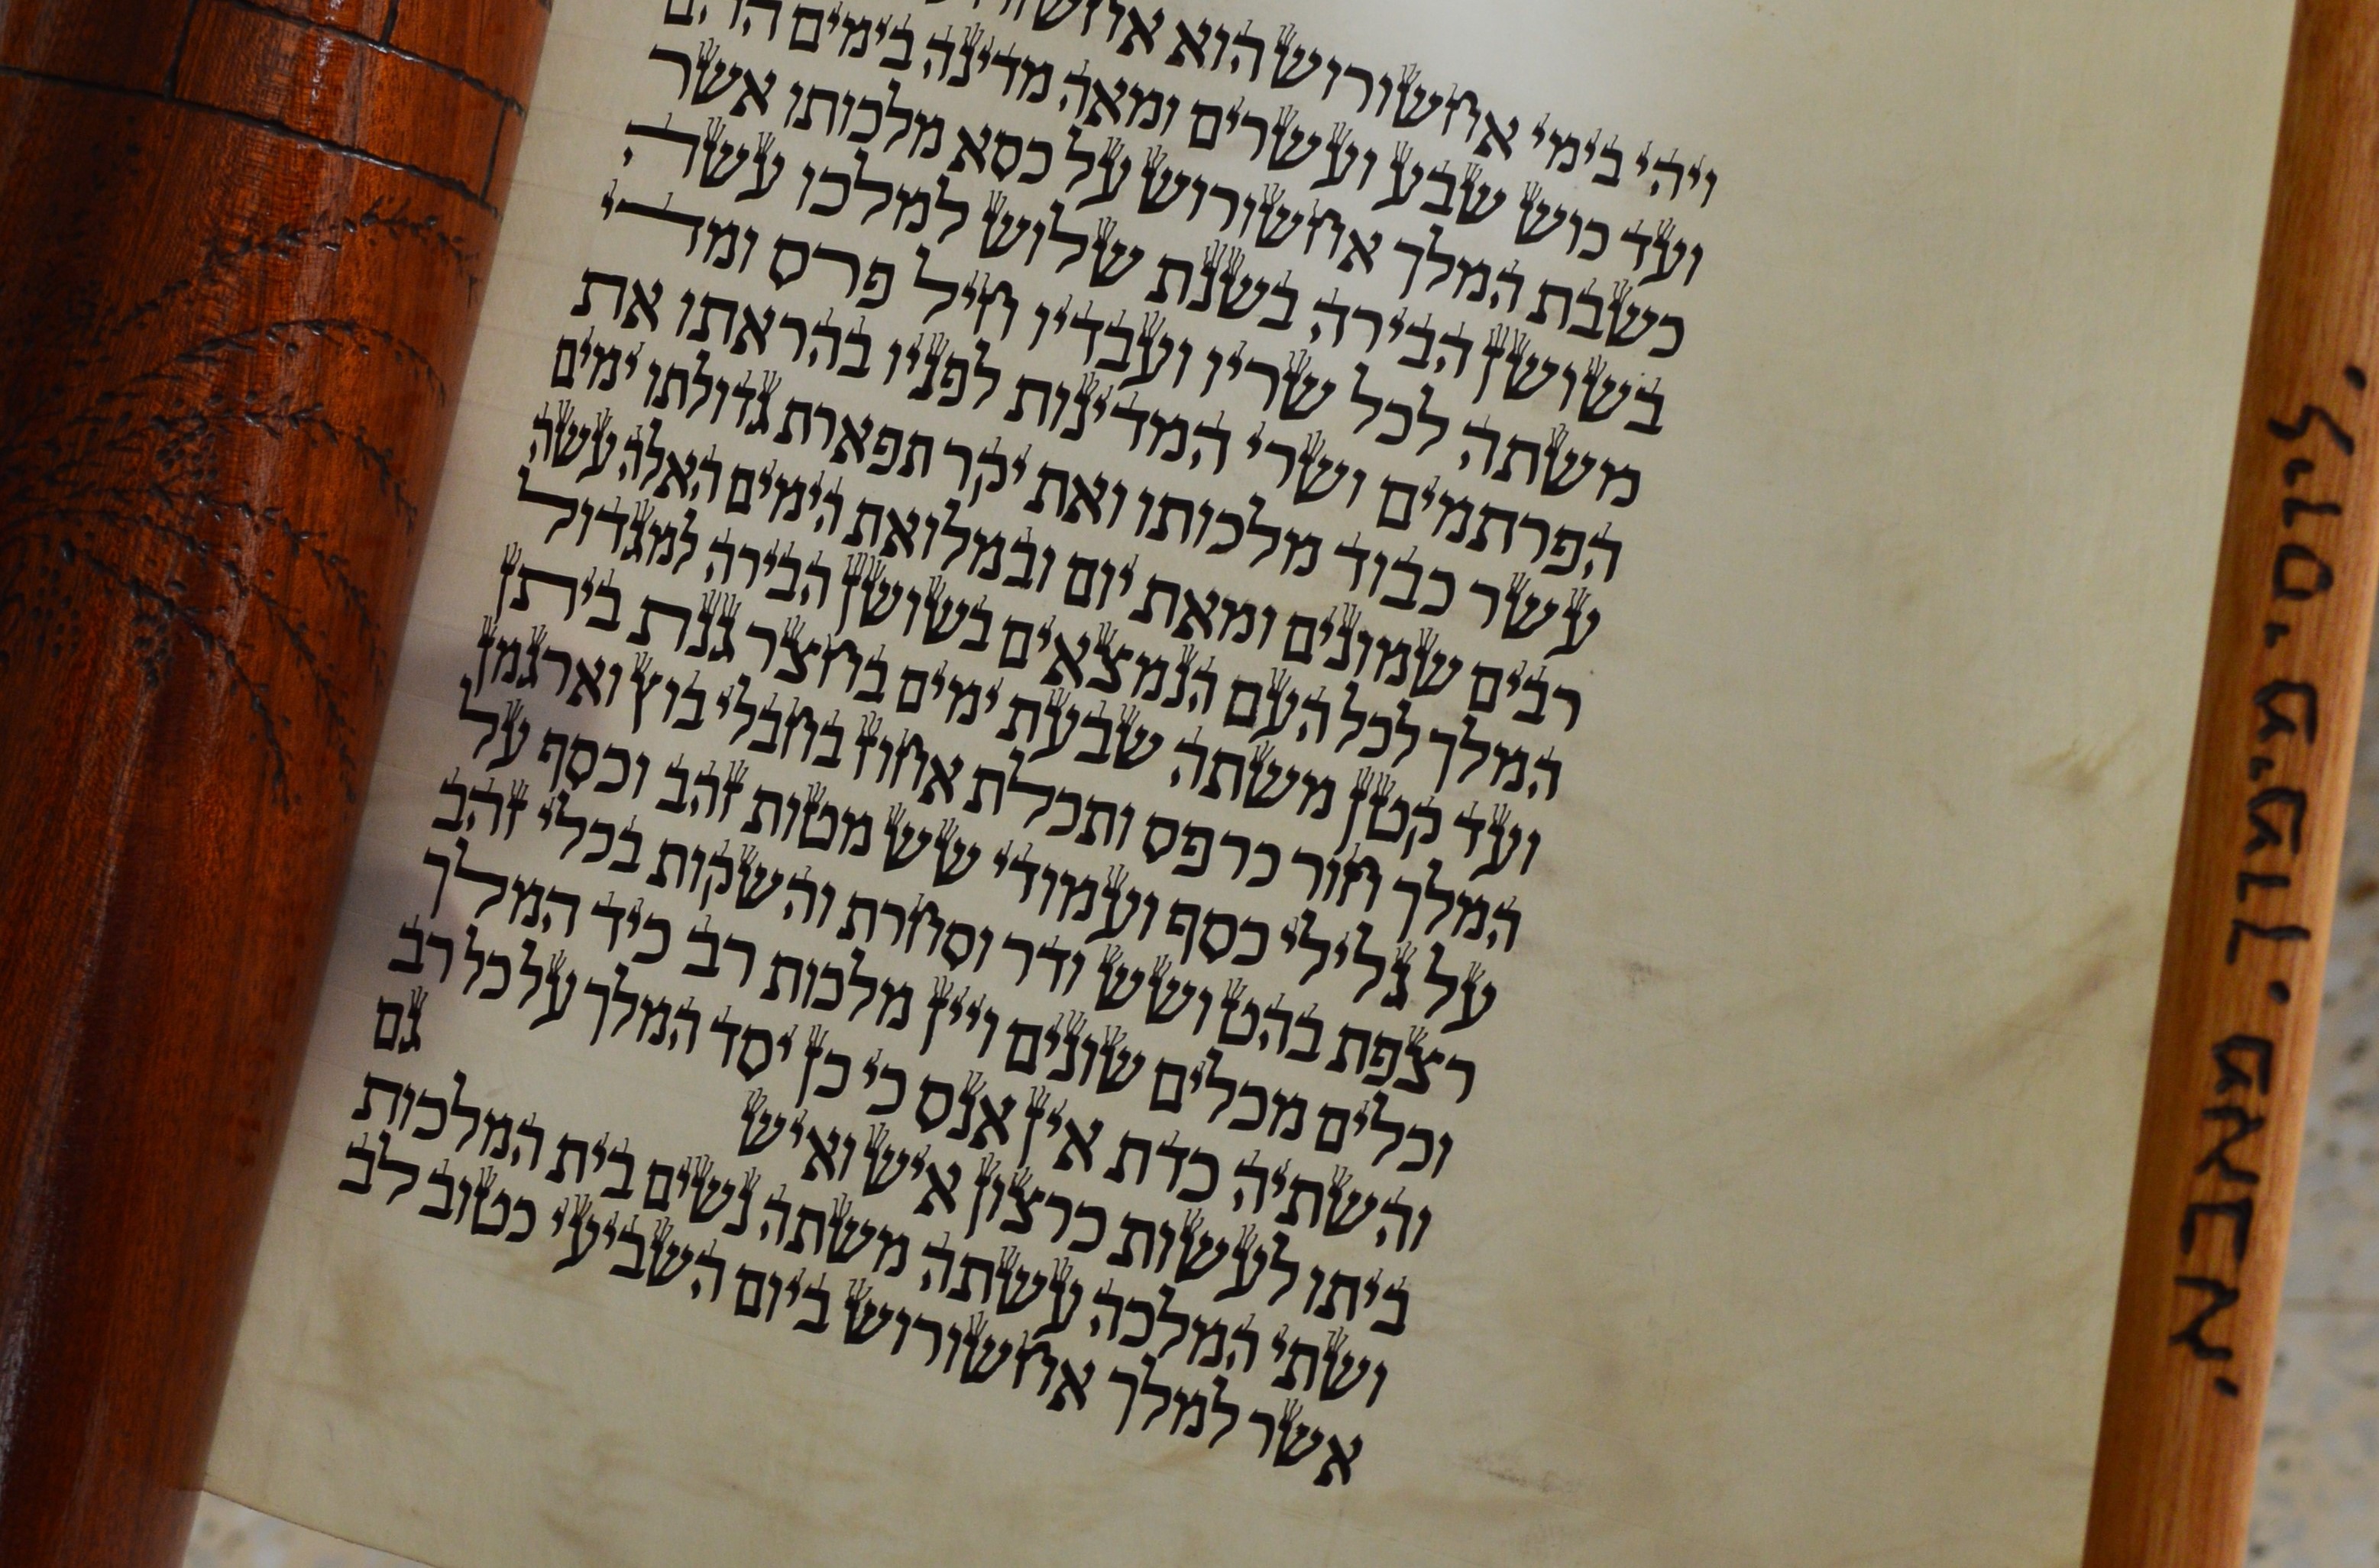 ויהי בימי אחשורוש הוא
ועד כוש שבע ועשרים ומאה מדינה בימים ההם
כשבת המלך אחשורוש על כסא מלכותו אשר
בשושן הבירה בשנת שלוש למלכו עשה
משתה לכל שריו ועבדיו חיל פרס ומדי
הפרתמים ושרי המדינות לפניו בהראתו את
עשר כבוד מלכותו ואת יקר תפארת גדולתו ימים
רבים שמונים ומאת יום ובמלואת הימים האלה עשה
המלך לכל העם הנמצאים בשושן הבירה למגדול
ועד קטן משתה שבעת ימים בחצר גנת ביתן
המלך חור כרפס ותכלת אחוז בחבלי בוץ וארגמן
על גלילי כסף ועמודי שש מטות זהב וכסף על
רצפת בהט ושש ודר וסחרת והשקות בכלי זהב
וכלים מכלים שונים ויין מלכות רב כיד המלך
והשתיה כדת אין אנס כי כן יסד המלך על כל רב
ביתו לעשות כרצון איש ואיש גם
ושתי המלכה עשתה משתה נשים בית המלכות
אשר למלך אחשורוש ביום השביעי כטוב לב